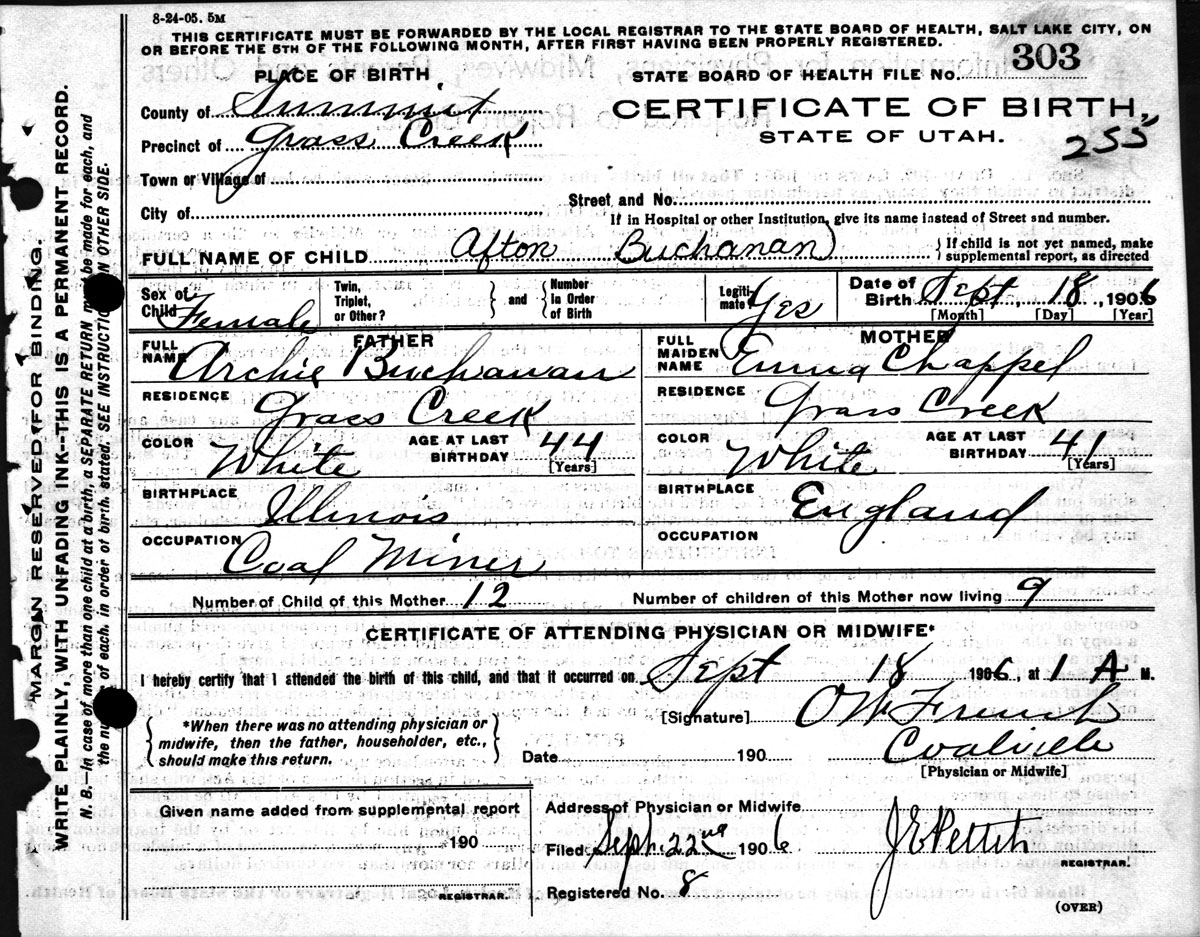 8-24-05. 5M
THIS CERTIFICATE MUST BE FORWARDED BY THE LOCAL REGISTRAR TO THE STATE BOARD OF HEALTH, SALT LAKE CITY, ON
OR BEFORE THE 5TH OF THE FOLLOWING MONTH, AFTER FIRST HAVING BEEN PROPERLY REGISTERED.
PLACE OF BIRTH
STATE BOARD OF HEALTH FILE No. 303
County of Summit
CERTIFICATE OF BIRTH,
Precinct of Grass Creek
STATE OF UTAH.
255
Town or Village of
Street and No.
City of
If in Hospital or other Institution, give its name instead of Street and number.
FULL NAME OF CHILD Afton Buchanan
If child is not yet named, make
supplemental report, as directed
Sex of Child Female
Twin, Triplet, or Other?
and
Number In Order of Birth
Legitimate? Yes
Date of Birth Sept 18, 1906
[Month] [Day] [Year]
FATHER
MOTHER
FULL NAME Archie Buchanan
FULL MAIDEN NAME Emma Chappel
RESIDENCE Grass Creek
RESIDENCE Grass Creek
COLOR White
AGE AT LAST BIRTHDAY 44
[Years]
COLOR White
AGE AT LAST BIRTHDAY 41
[Years]
BIRTHPLACE Illinois
BIRTHPLACE England
OCCUPATION Coal Miner
OCCUPATION
Number of Child of this Mother 12
Number of children of this Mother now living 9
CERTIFICATE OF ATTENDING PHYSICIAN OR MIDWIFE*
I hereby certify that I attended the birth of this child, and that it occurred on Sept 18 1906, at 1 A M.
*When there was no attending physician or
midwife, then the father, householder, etc.,
should make this return.
[Signature] O W French
Date 190
Coalville
[Physician or Midwife]
Given name added from supplemental report
190
REGISTRAR.
Address of Physician or Midwife
Filed Sept. 22nd 1906
J E Pettit
REGISTRAR.
Registered No. 8
(OVER)
MARGAN RESERVED FOR BINDING.
WRITE PLAINLY, WITH UNFADING INK--THIS IS A PERMANENT RECORD.
N. B.—In case of more than one child at a birth, a SEPARATE RETURN must be made for each, and
the number of each, in order of birth, stated. SEE INSTRUCTIONS ON OTHER SIDE.